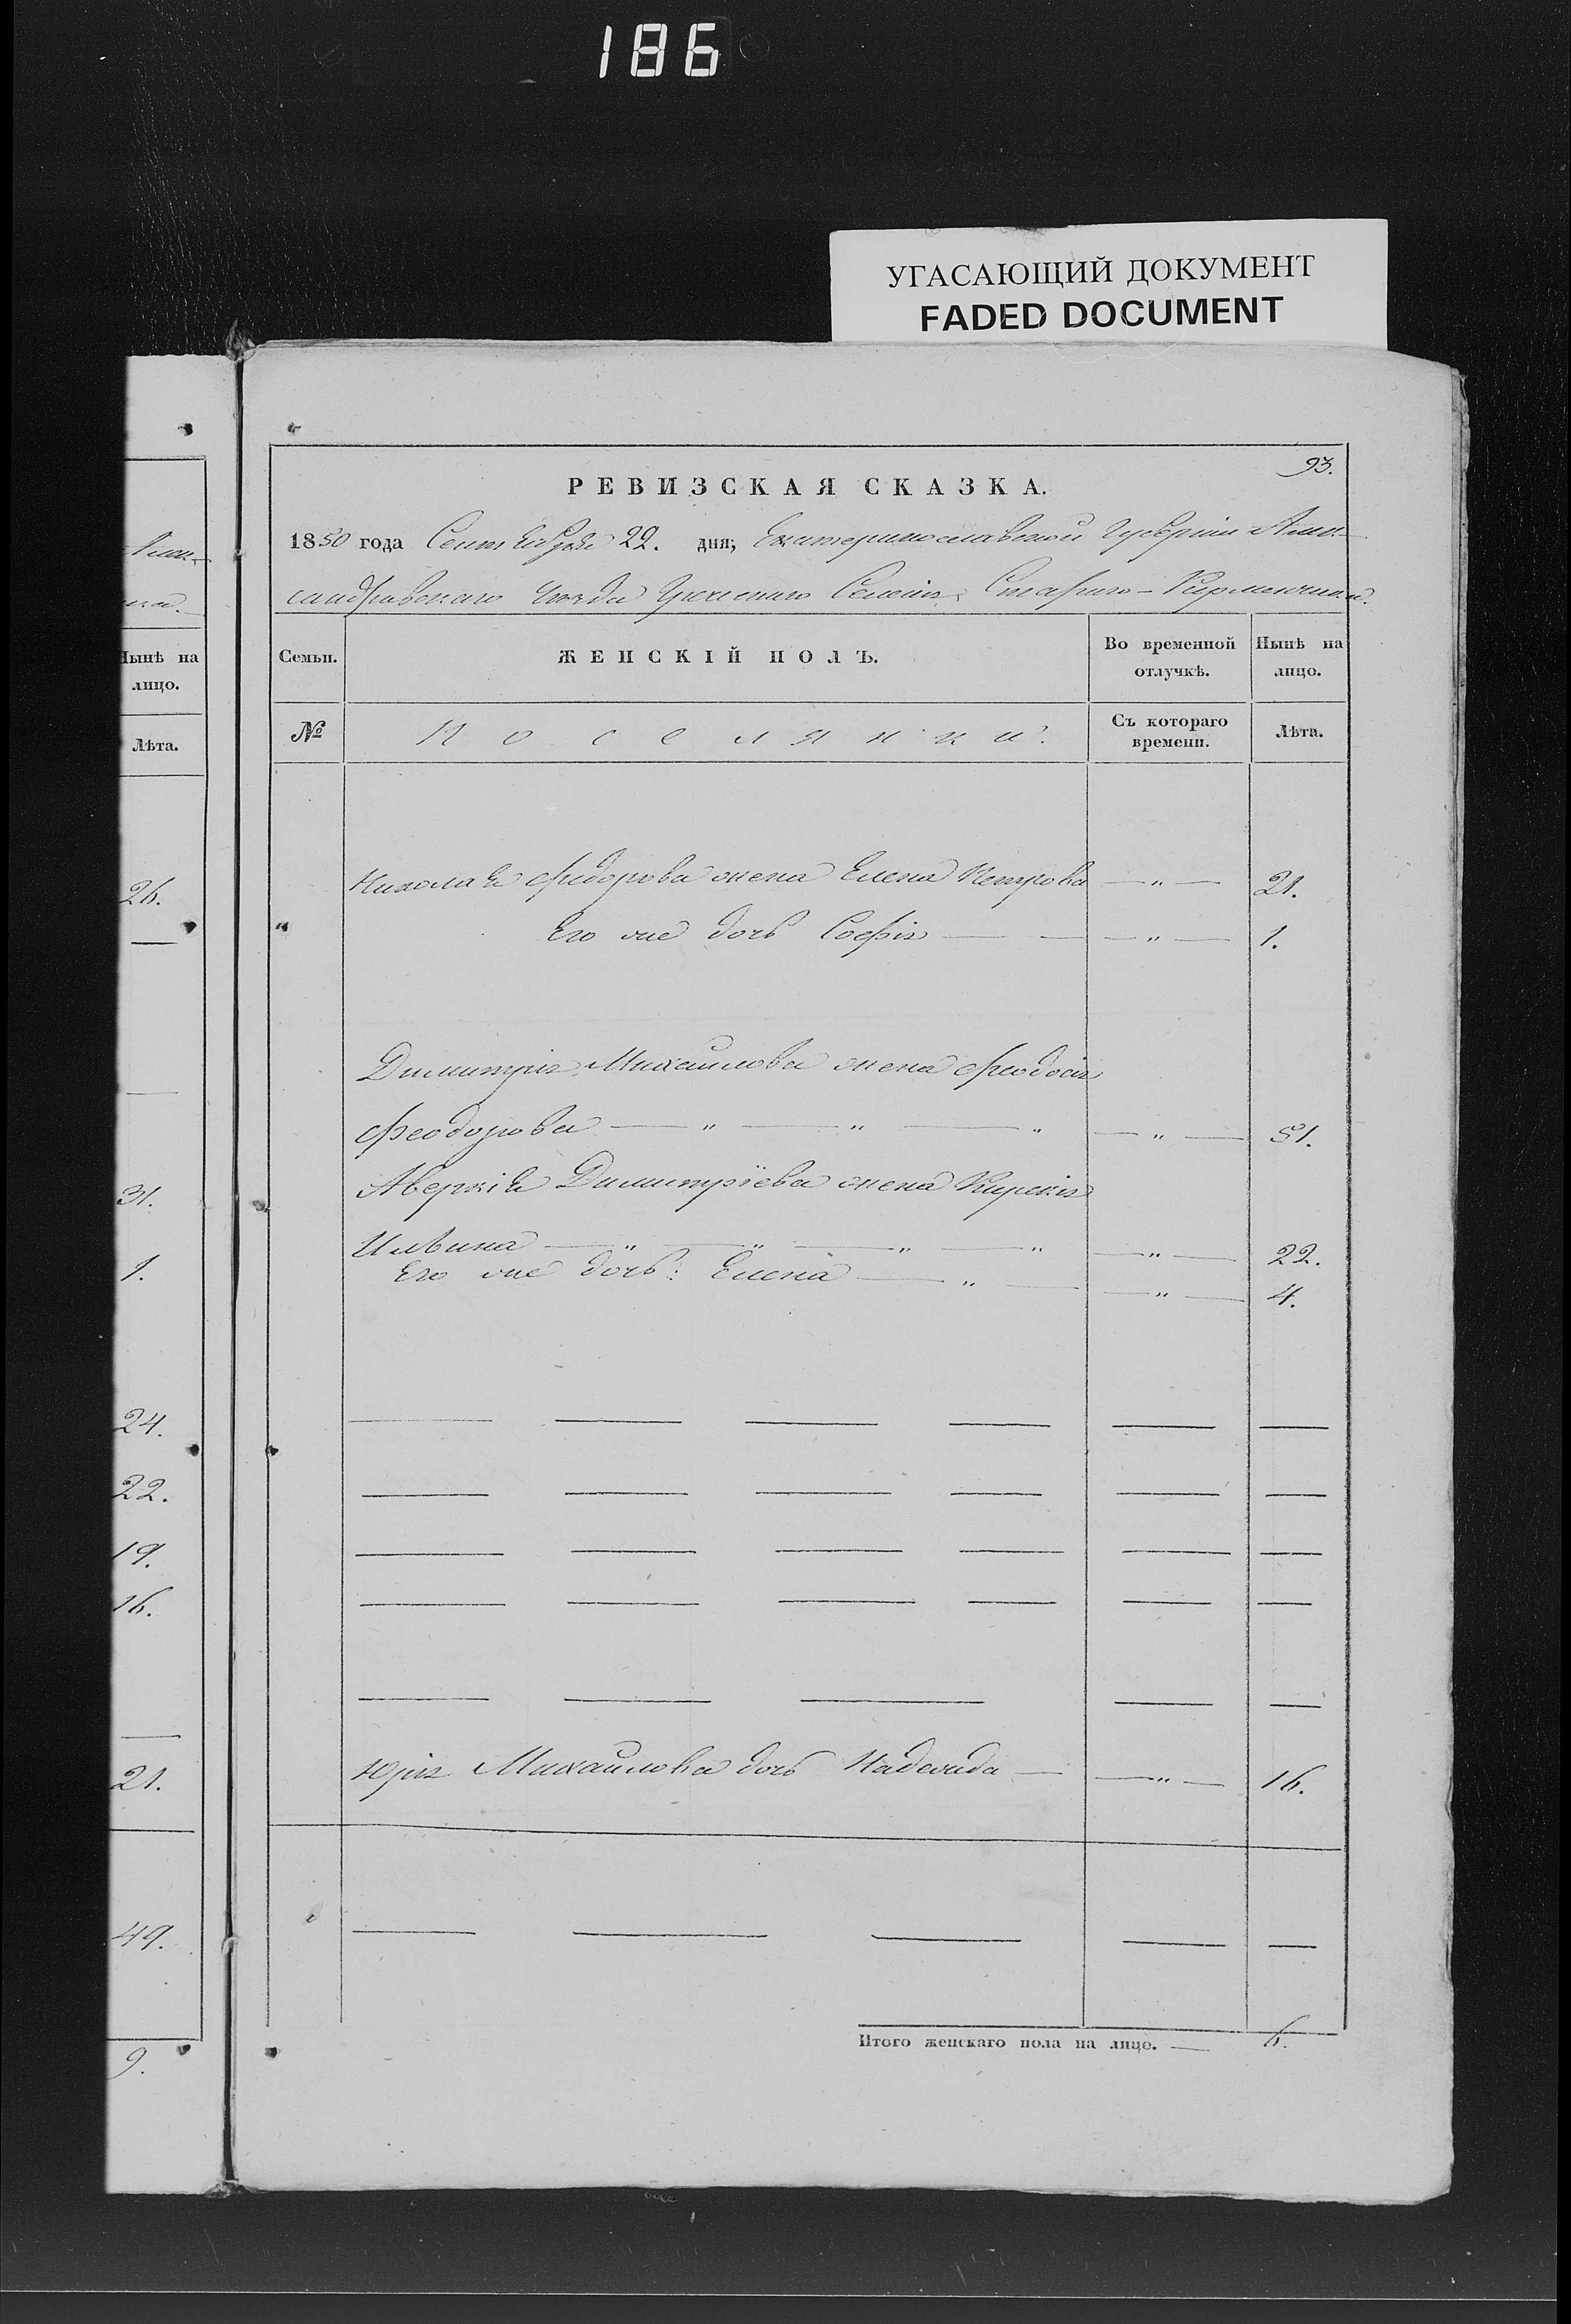 186
УГАСАЮЩИЙ ДОКУМЕНТ
FADED DOCUMENT
93.
РЕВИЗСКАЯ СКАЗКА.
1850 года Сентября 22. дня, Екатеринославской Губерніи Алек-
сандровскаго Уѣзда Греческаго Селенія Стараго-Керменчика.
Семьи.
ЖЕНСКІЙ ПОЛЪ.
Во временной отлучкѣ.
Нынѣ на лицо.
№
Поселянки.
Съ котораго времени.
Лѣта.
Николая Федорова жена Елена Петрова — " — 21.
Его же дочь Софія — — — " — 1.
Димитрія Михайлова жена Феодосія
Феодорова — " — " — " — " — 51.
Аверкія Димитріева жена Кирекія
Ильина — " — " — " — " — " — 22.
Его же дочь: Елена — " — — " — 4.
Юрія Михайлова дочь Надежда — — " — 16.
Итого женскаго пола на лицо. — 6.
Нынѣ на
лицо.
Лѣта.
26.
31.
1.
24.
22.
19.
16.
21.
49.
9.